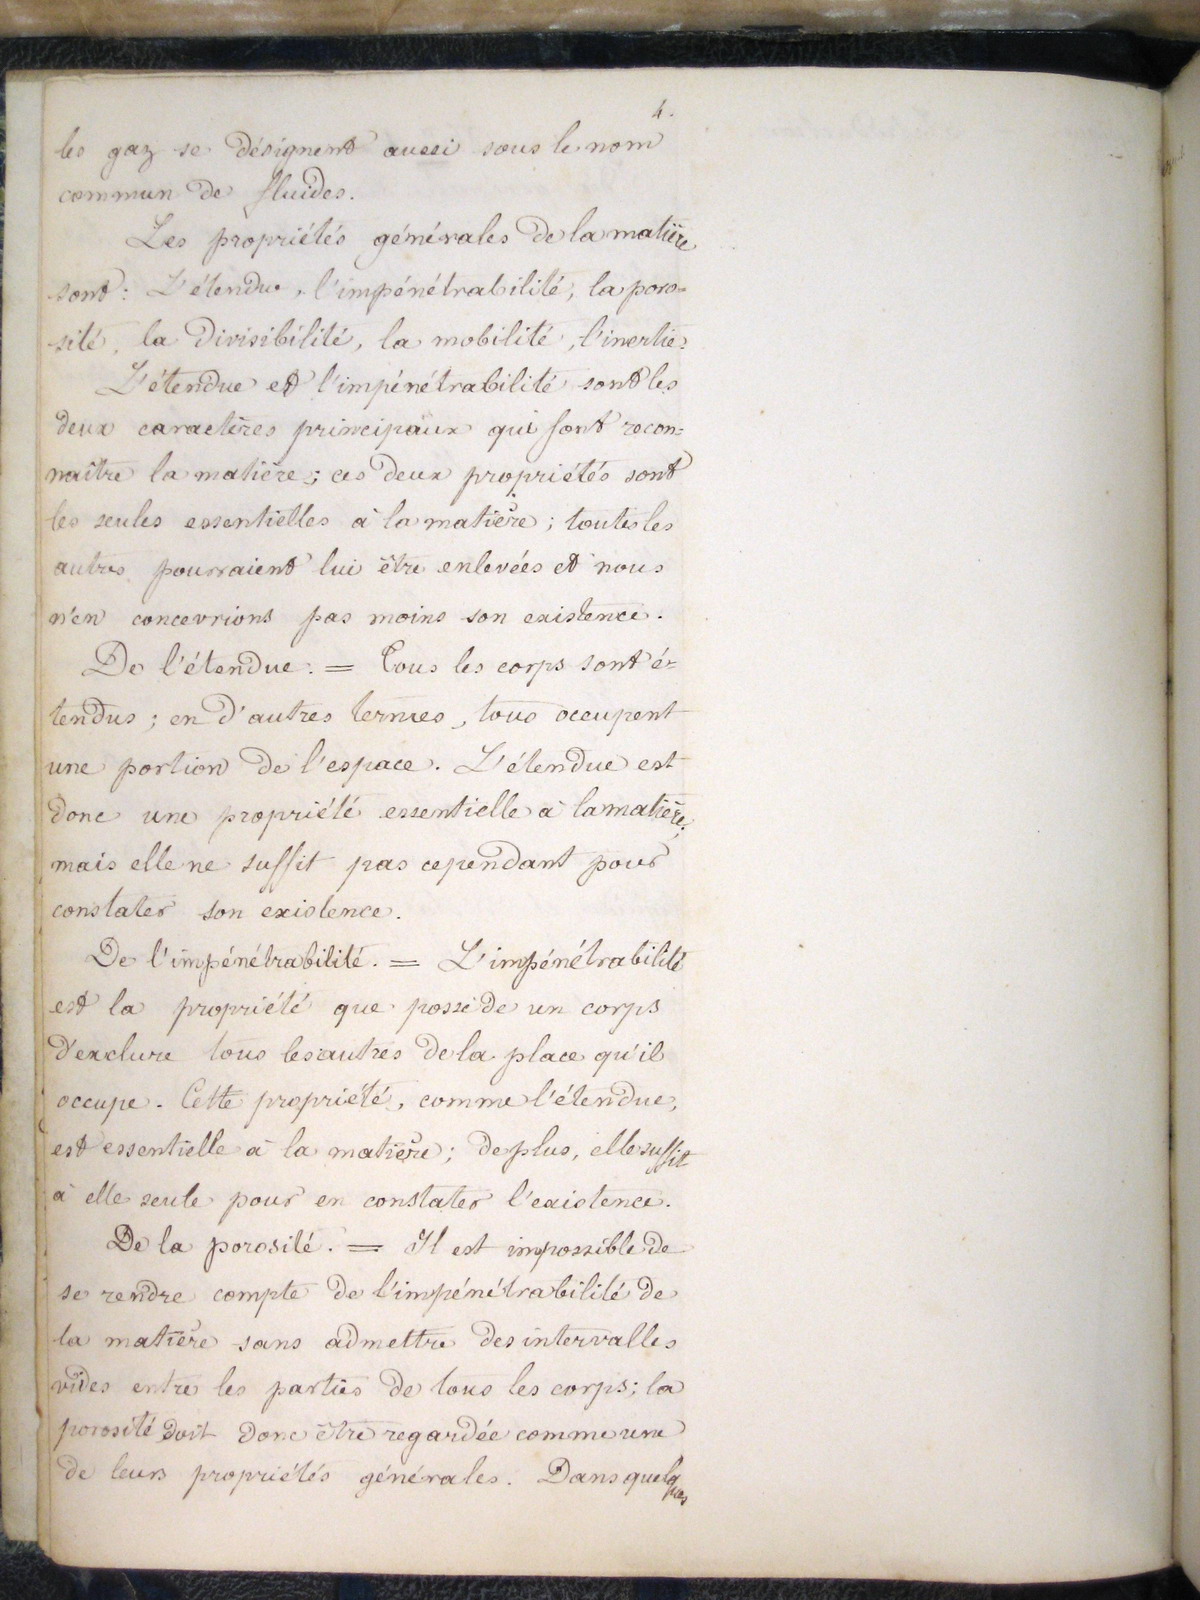 4.
les gaz se désignent aussi sous le nom
commun de fluides.
Les propriétés générales de la matière
sont : L'étendue, l'impénétrabilité, la poro=
sité, la divisibilité, la mobilité, l'inertie.
L'étendue et l'impénétrabilité sont les
deux caractères principaux qui font recon=
naître la matière ; ces deux propriétés sont
les seules essentielles à la matière ; toutes les
autres pourraient lui être enlevées et nous
n'en concevrions pas moins son existence.
De l'étendue. = Tous les corps sont é-
tendus ; en d'autres termes, tous occupent
une portion de l'espace. L'étendue est
donc une propriété essentielle à la matière,
mais elle ne suffit pas cependant pour
constater son existence.
De l'impénétrabilité. = L'impénétrabilité
est la propriété que possède un corps
d'exclure tous les autres de la place qu'il
occupe. Cette propriété, comme l'étendue,
est essentielle à la matière ; de plus, elle suffit
à elle seule pour en constater l'existence.
De la porosité. = Il est impossible de
se rendre compte de l'impénétrabilité de
la matière sans admettre des intervalles
vides entre les parties de tous les corps ; la
porosité doit donc être regardée comme une
de leurs propriétés générales. Dans quelques